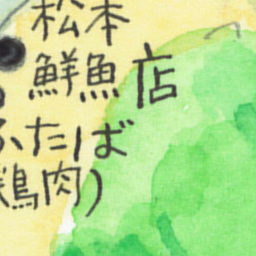 松本
鮮魚店
ふたば
鶏肉)